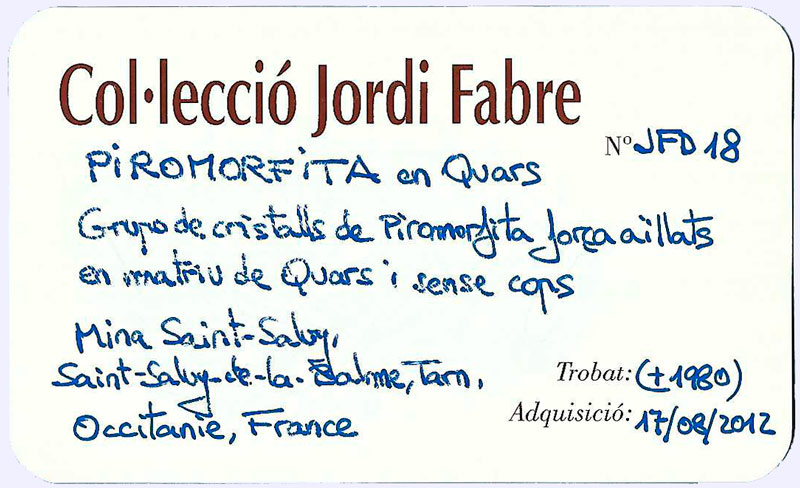 Col·lecció Jordi Fabre
Nº JFD18
PIROMORFITA en Quars
Grupo de cristalls de Piromorfita força aïllats
en matriu de Quars i sense cops
Mina Saint-Salvy,
Saint-Salvy-de-la-Balme, Tarn,
Occitanie, France
Trobat: (±1980)
Adquisició: 17/08/2012